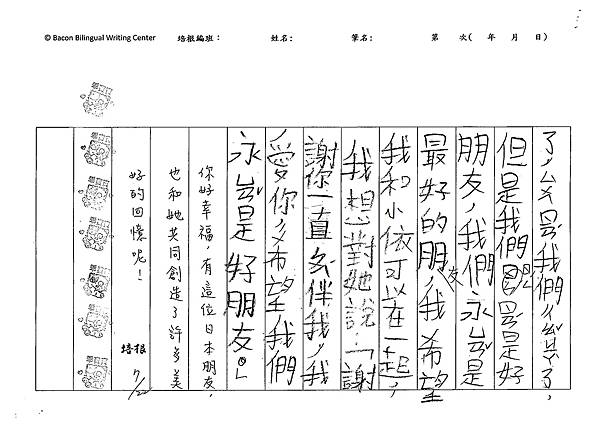 © Bacon Bilingual Writing Center 培根編班： 姓名： 筆名： 第 次( 年 月 日)
了，我們了，
但是我們是好
朋友，我們永ㄩㄢˇ是
最好的朋友，我希望
我和小依可以在一起，
我想對她說：「謝
謝你一直伴我，我
愛你，希望我們
永ㄩㄢˇ是好朋友。」
你好幸福，有這位日本朋友，
也和她共同創造了許多美
好的回憶呢！
培根